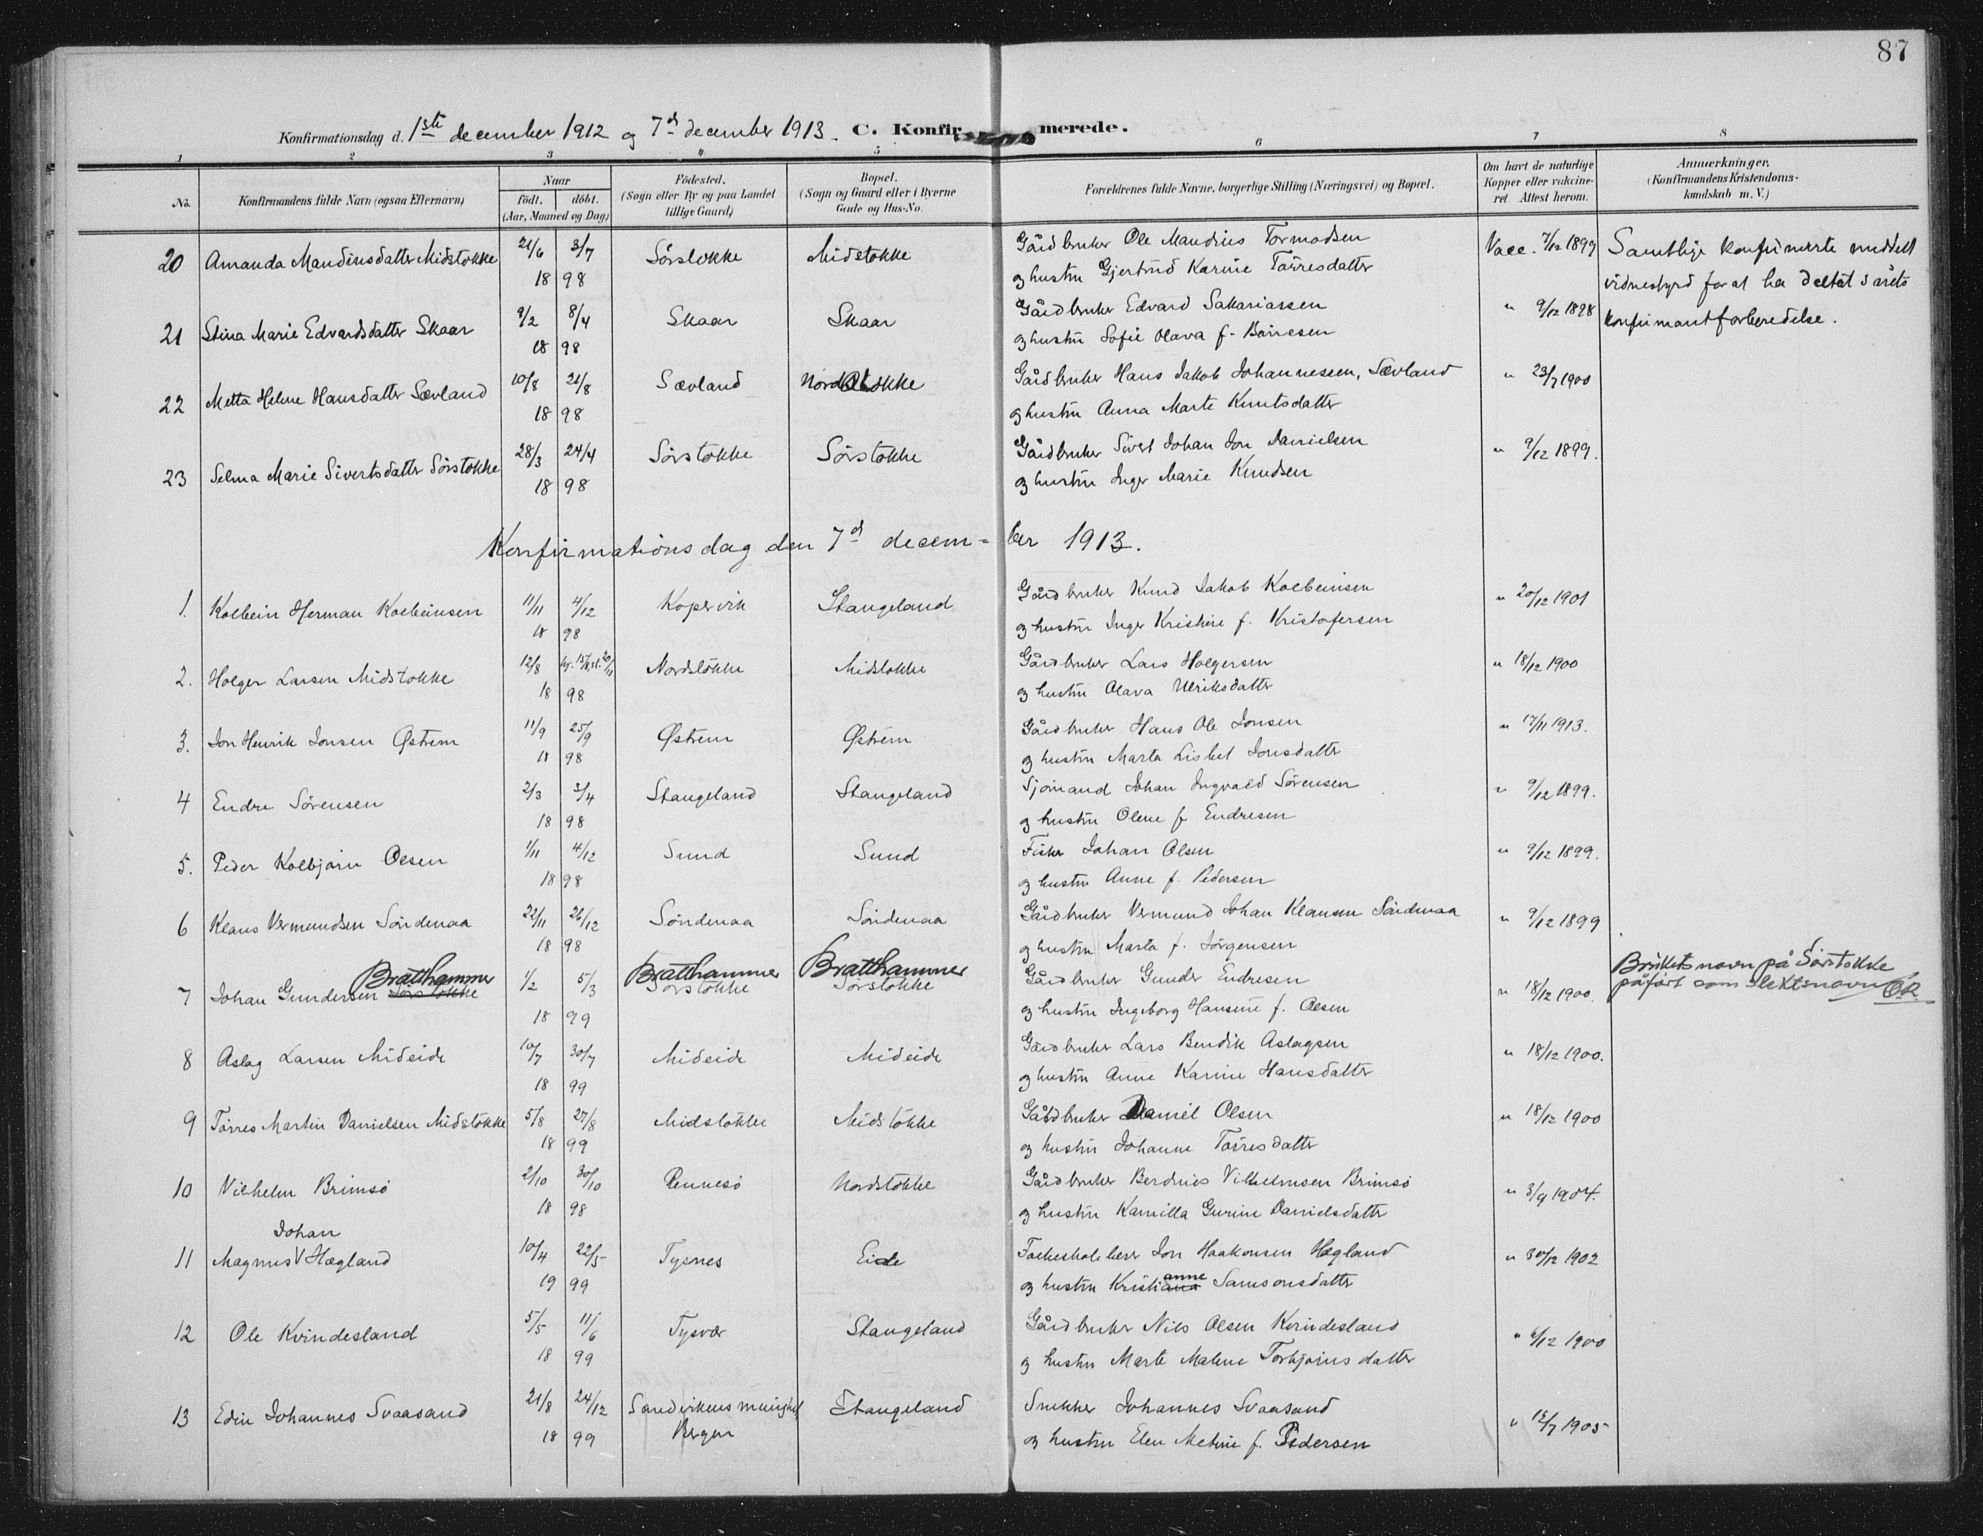 87
Konfirmationsdag d. 1ste december 1912 og 7d december 1913. C. Konfirmerede.
1 2 3 4 5 6 7 8
No. Konfirmandens fulde Navn (ogsaa Efternavn)
Naar født. døbt. (Aar, Maaned og Dag)
Fødested. (Sogn eller By og paa Landet tillige Gaard)
Bopæl. (Sogn og Gaard eller i Byerne Gade og Hus-No.
Forældrenes fulde Navne, borgerlige Stilling (Næringsvei) og Bopæl.
Om havt de naturlige Kopper eller vakcineret Attest herom.
Anmærkninger. (Konfirmandens Kristendomskundskab m. V.)
20 Amanda Mandiusdatter Midstokke 21/6 3/7 Sørstokke Midstokke Gårdbruker Ole Mandius Tormodsen Vacc. 7/12 1899 Samtlige konfirmerte meddelt
18 98 og hustru Gjertrud Karine Tørresdatter vidnesbyrd for at ha deltat i årets
21 Stina Marie Edvardsdatter Skaar 9/2 8/4 Skaar Skaar Gårdbruker Edvard Sakariassen " 9/12 1898 konfirmantforberedelse.
18 98 og hustru Sofie Olava f.
22 Metta Helene Hansdatter Sævland 10/8 21/8 Sævland Nordstokke Gårdbruker Hans Jakob Johannessen, Sævland " 23/7 1900
18 98 og hustru Anna Marte Knutsdatter
23 Selma Marie Sivertsdatter Sørstokke 28/3 24/4 Sørstokke Sørstokke Gårdbruker Sivert Johan Jon Danielsen " 9/12 1899.
18 98 og hustru Inger Marie Knudsen
Konfirmationsdag den 7d decem=ber 1913.
1. Kolbein Herman Kolbeinsen 11/11 4/12 Kopervik Stangeland Gårdbruker Knud Jakob Kolbeinsen " 20/12 1901
18 98 og hustru Inger Kristine f. Kristofersen
2. Holger Larsen Midstokke 12/8 Nordstokke Midstokke Gårdbruker Lars Holgersen " 18/12 1900
18 98 og hustru Olava Ulriksdatter
3. Jon Henrik Jonsen Østrem 11/9 25/9 Østrem Østrem Gårdbruker Hans Ole Jonsen " 17/11 1913.
18 98 og hustru Marta Lisbet Jonsdatter
4 Endre Sørensen 2/3 3/4 Stangeland Stangeland Sjømand Johan Ingvald Sørensen " 9/12 1899.
18 98 og hustru Olene f. Endresen
5. Peder Kolbjørn Olsen 1/11 4/12 Sund Sund Fisker Johan Olsen " 9/12 1899.
18 98 og hustru Anne f. Pedersen
6 Klaus Vermundsen Søndenaa 22/11 26/12 Søndenaa Søndenaa Gårdbruker Vermund Johan Klausen Søndenaa " 9/12 1899
18 98 og hustru Marta f. Jørgensen
Bratthammer Bratthammer Bratthammer Bruketsnavn på Sørstokke
7 Johan Gundersen Sørstokke 1/2 5/3 Sørstokke Sørstokke Gårdbruker Gunder Endresen " 18/12 1900. påført som slektsnavn
18 99 og hustru Ingeborg Hansine f. Olsen
8 Aslag Larsen Mideide 10/7 30/7 Mideide Mideide Gårdbruker Lars Bendik Aslagsen " 18/12 1900.
18 99 og hustru Anne Karine Hansdatter
9 Tørres Martin Danielsen Midstokke 5/8 27/8 Midstokke Midstokke Gårdbruker Daniel Olsen " 18/12 1900
18 99 og hustru Johanne Tørresdatter
10 Vilhelm Brimsø 2/10 30/10 Rennesø Nordstokke Gårdbruker Berdnes Vilhelmsen Brimsø " 3/9 1904.
18 98 og hustru Kamilla Gurine Danielsdatter
Johan
11 Magnus V Hægland 10/4 22/5 Tysnes Eide Folkeskolelærer Jon Haakonsen Hægland " 30/12 1902
19 99 og hustru Kristiana anne Samsonsdatter
12 Ole Kvindesland 5/5 11/6 Tysvær Stangeland Gårdbruker Nils Olsen Kvindesland " 6/12 1900
18 99 og hustru Marte Malene Torbjørnsdatter
13 Edin Johannes Svaasand 21/8 24/12 Sandvikens menighed Stangeland Snekker Johannes Svaasand " 12/7 1905
18 99 Bergen og hustru Elen Metine f. Pedersen